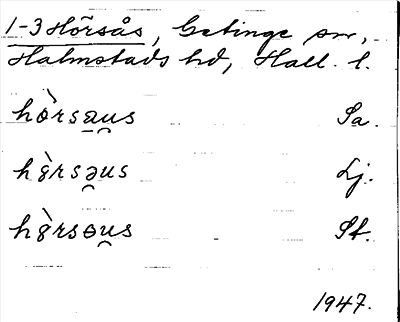 1-3 Hörsås, Getinge sn,
Halmstads hd, Hall. l.
hòrsau̯s Sa.
hèrsəu̯s Lj.
hèrsɵu̯s St.
1947.